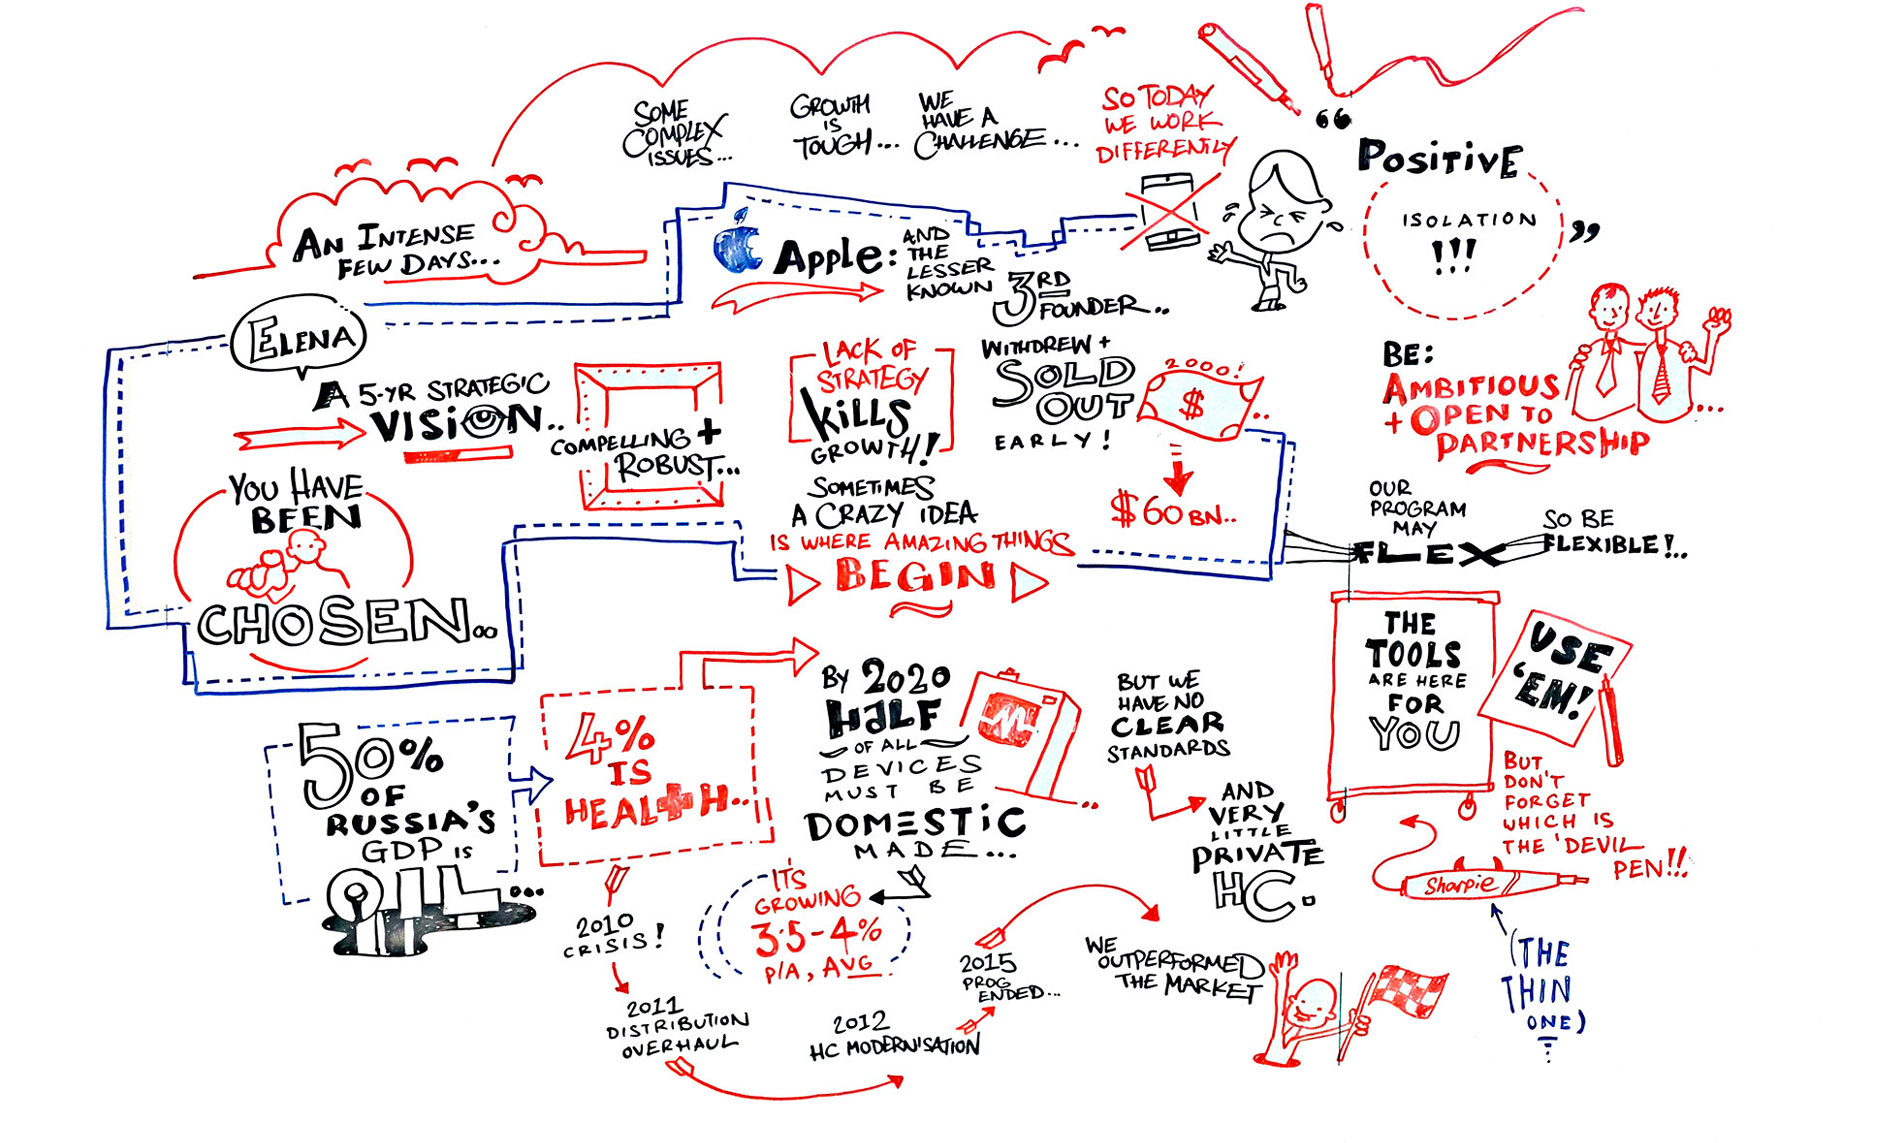 SOME
COMPLEX
ISSUES...
GROWTH
IS
TOUGH...
WE
HAVE A
CHALLENGE...
SO TODAY
WE WORK
DIFFERENTLY
“
POSITIVE
ISOLATION
!!!
”
AN INTENSE
FEW DAYS...
ELENA
A 5-YR STRATEGIC
VISION..
COMPELLING +
ROBUST...
YOU HAVE
BEEN
CHOSEN..
APPLE: AND
THE
LESSER
KNOWN
3RD
FOUNDER..
WITHDREW +
SOLD
OUT
EARLY!
2000!
$
..
$60 BN..
LACK OF
STRATEGY
KILLS
GROWTH!
SOMETIMES
A CRAZY IDEA
IS WHERE AMAZING THINGS
BEGIN
BE:
AMBITIOUS
+ OPEN TO
PARTNERSHIP
....
OUR
PROGRAM
MAY
FLEX
SO BE
FLEXIBLE!..
THE
TOOLS
ARE HERE
FOR
YOU
USE
'EM!
BUT
DON'T
FORGET
WHICH IS
THE 'DEVIL
PEN!!'
Sharpie
(THE
THIN
ONE)
50%
OF
RUSSIA'S
GDP IS
OIL...
4%
IS
HEALTH..
BY 2020
HALF
OF ALL
DEVICES
MUST BE
DOMESTIC
MADE...
..
BUT WE
HAVE NO
CLEAR
STANDARDS
AND
VERY
LITTLE
PRIVATE
HC.
IT'S
GROWING
3.5-4%
P/A, AVG
2010
CRISIS!
2011
DISTRIBUTION
OVERHAUL
2012
HC MODERNISATION
2015
PROG
ENDED...
WE
OUTPERFORMED
THE MARKET